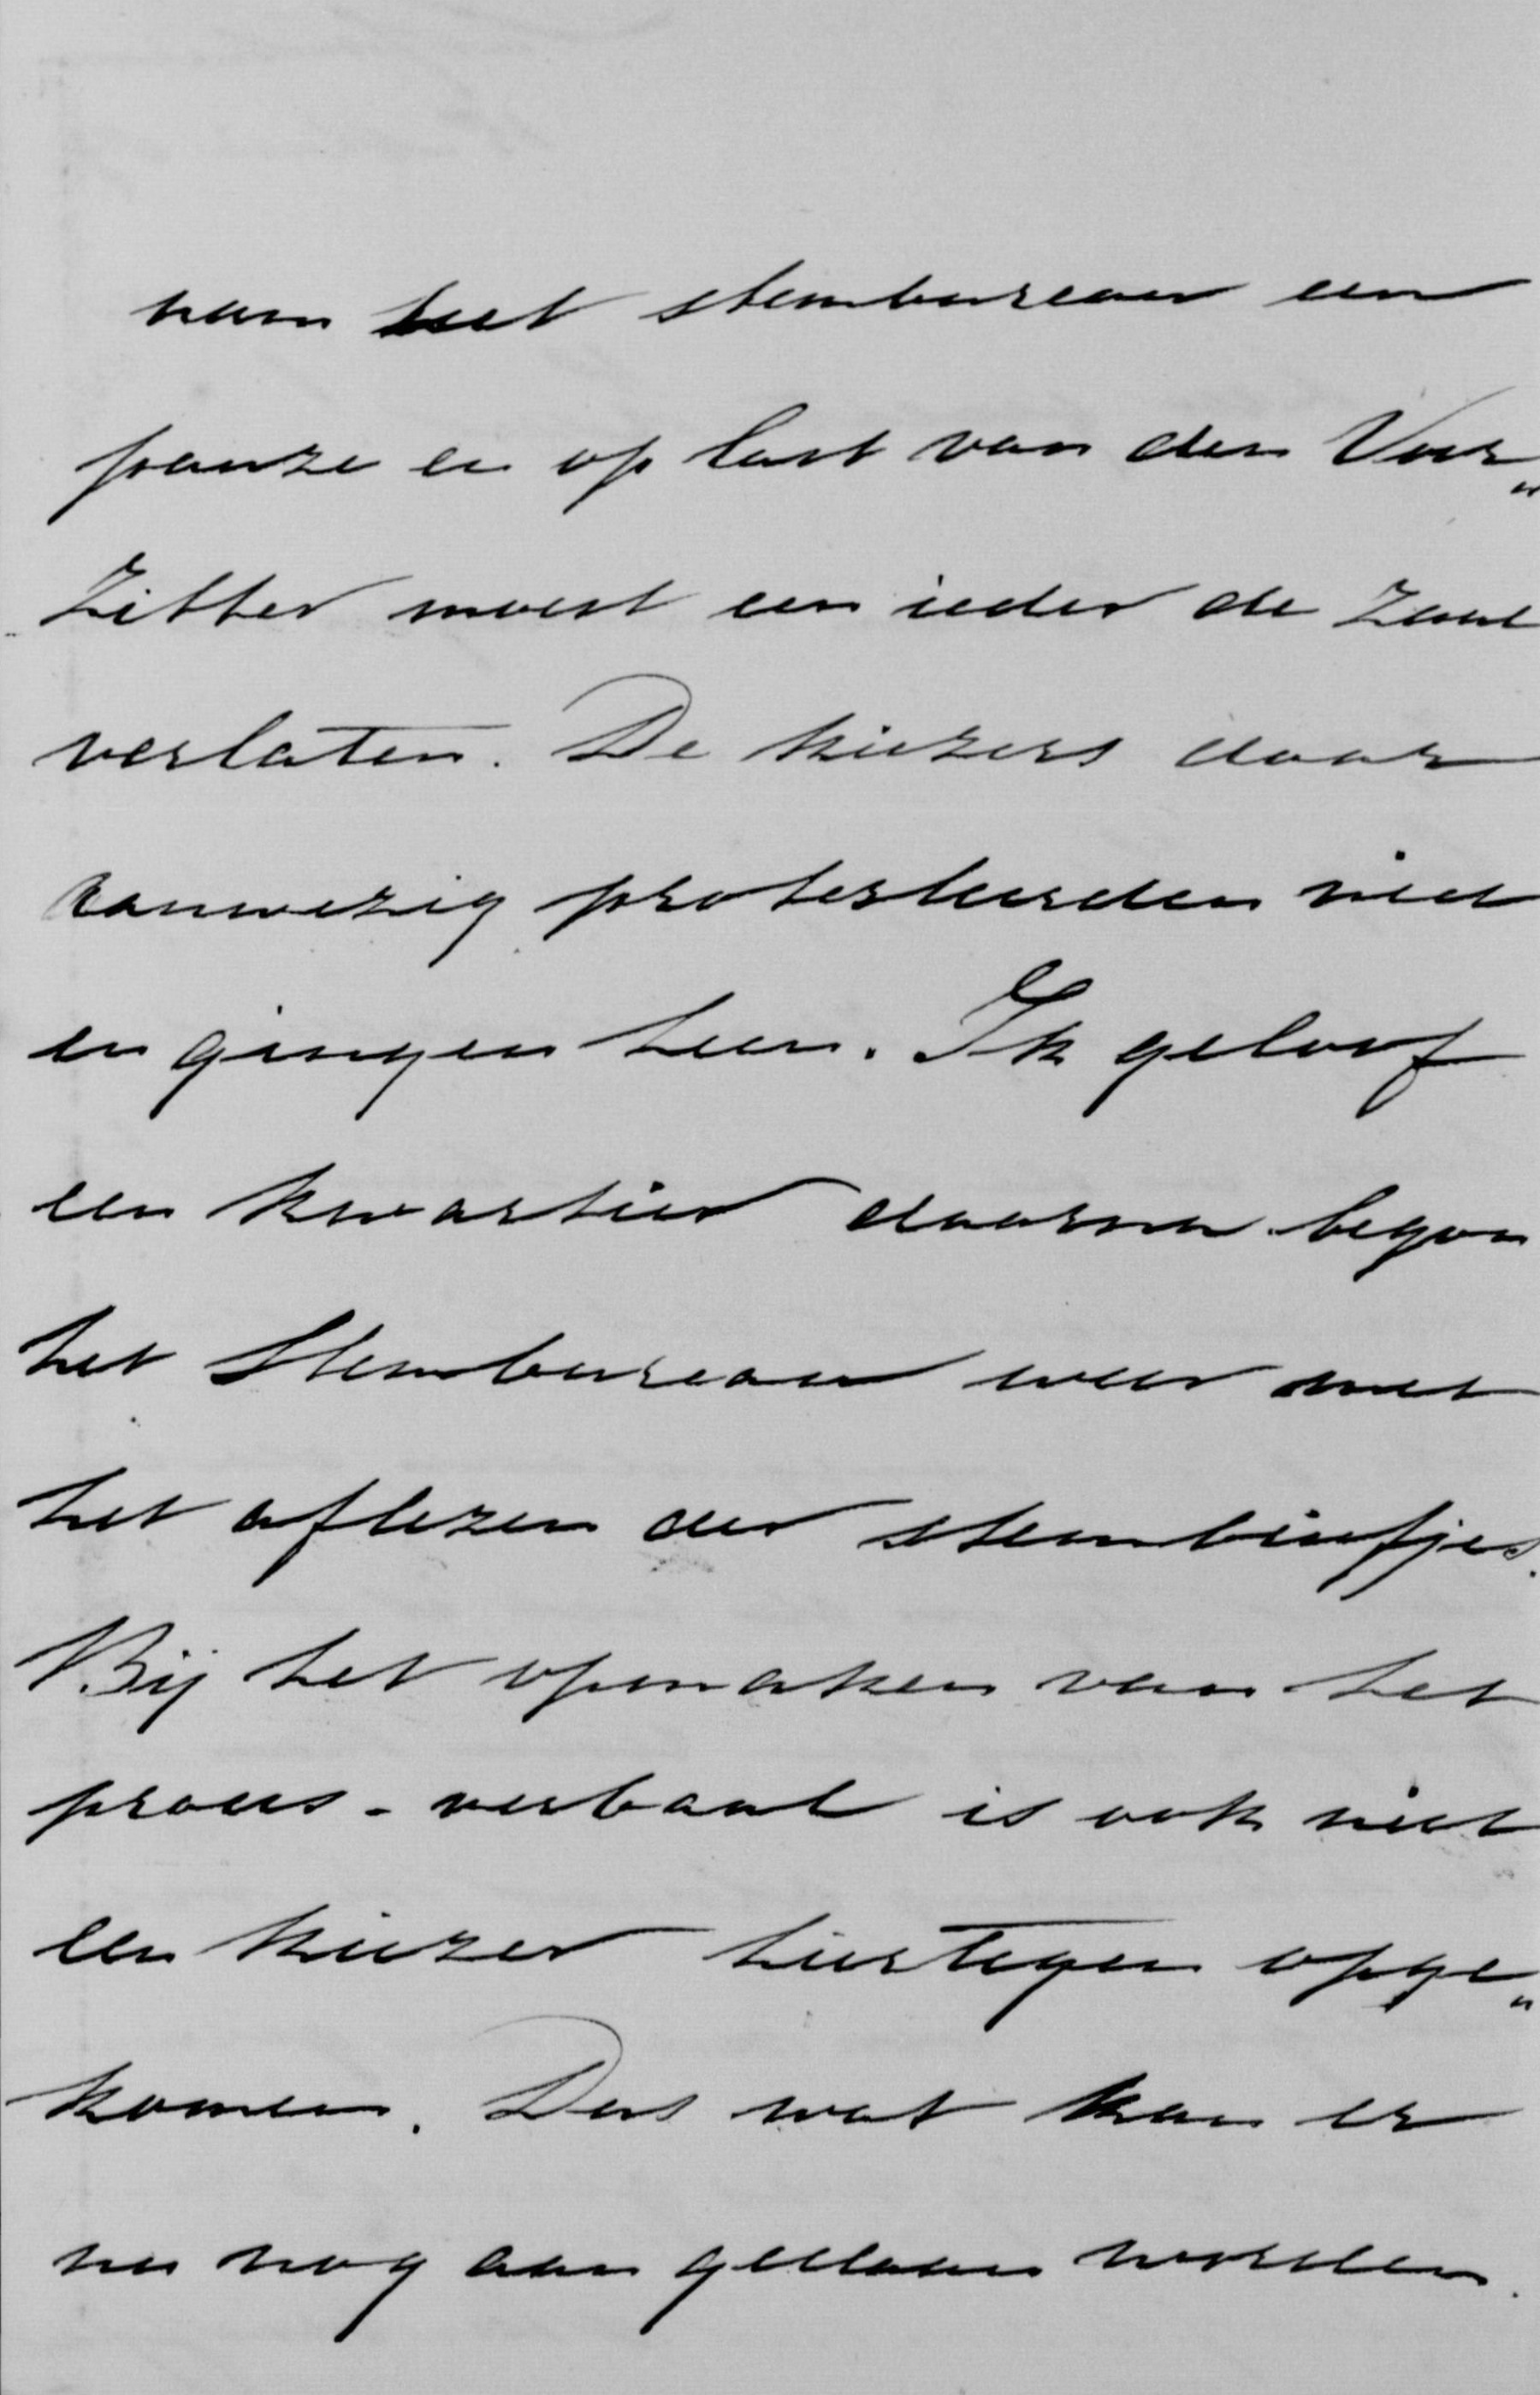 nam het stembureau een
pauze en op last van den Voor„
Zitter moest een ieder de Zaal
verlaten. De kiezers daar
aanwezig protesteerden niet
en gingen heen. Ik geloof
een kwartier daarna begon
het Stembureau weer met
het aflezen der stembriefjes.
Bij het opmaken van het
proces-verbaal is ook niet
een kiezer hiertegen opge„
komen. Dus wat kan er
nu nog aan gedaan worden.